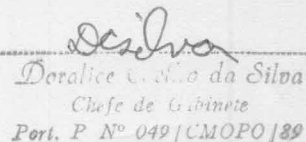 DCSilva
Doralice da Silva
Chefe de Gabinete
Port. P Nº 049 / CMOPO / 89